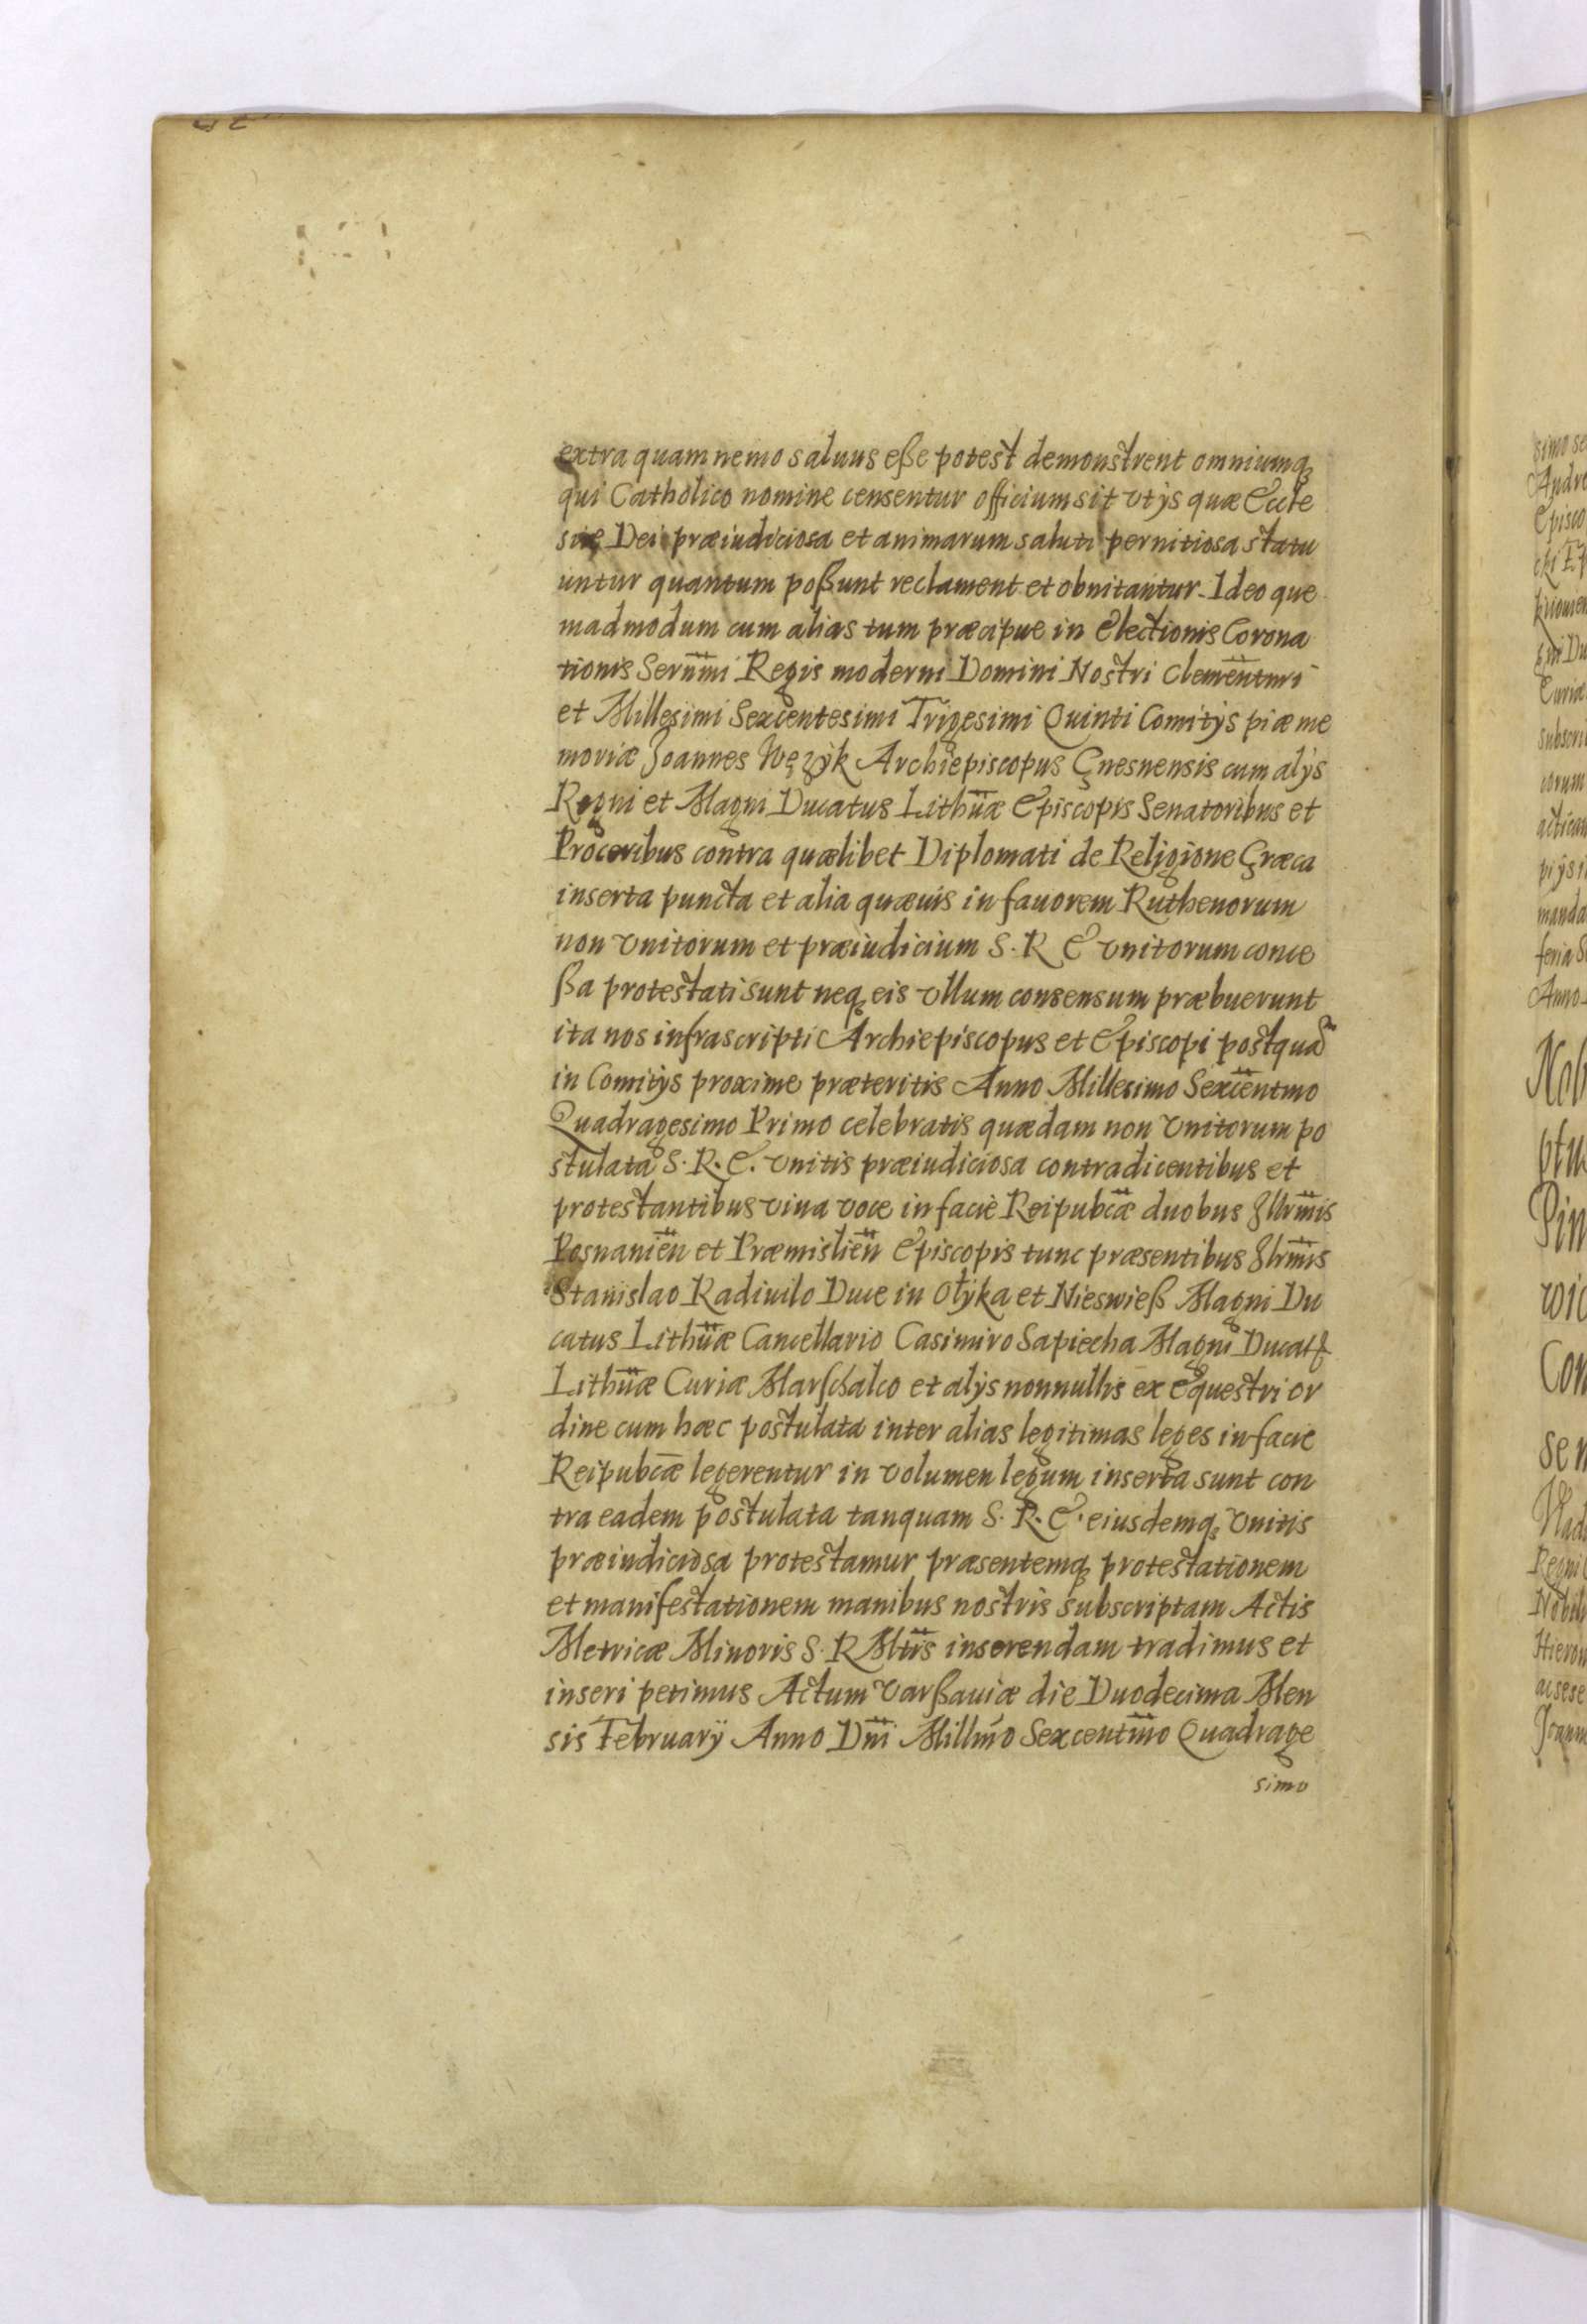 extra quam nemo saluus eße potest demonstrent omniumq;
qui Catholico nomine censentur officium sit vt ijs quæ Eccle
siæ Dei præiudiciosa et animarum saluti pernitiosa statu
untur quantum poßunt reclament et obnitantur. Ideo que
madmodum cum alias tum præcipue in Electionis Corona
tionis Sernm̅i Regis moderni Domini Nostri Cleme̅ntmi
et Millesimi Sexcentesimi Trigesimi Quinti Comitijs piæ me
moriæ Joannes Węzÿk Archiepiscopus Gnesnensis cum alijs
Regni et Magni Ducatus Lithu̅æ Episcopis Senatoribus et
Proceribus contra quælibet Diplomati de Religione Græca
inserta puncta et alia quæuis in fauorem Ruthenorum
non Vnitorum et præiudicium S. R E Vnitorum conce
ßa protestati sunt neq; eis vllum consensum præbuerunt
ita nos infrascripti Archiepiscopus et Episcopi postqua̅
in Comitijs proxime præteritis Anno Millesimo Sexce̅ntmo
Quadragesimo Primo celebratis quædam non Vnitorum po
stulata S. R. E. Vnitis præiudiciosa contradicentibus et
protestantibus viua voce in facie Reipubc̅æ duobus Jllrm̅is
Posnanien̅ et Præmislien̅ Episcopis tunc præsentibus Jlrm̅is
Stanislao Radiuilo Duce in Ołÿka et Nieswieß Magni Du
catus Lithu̅æ Cancellario Casimiro Sapiecha Magni Ducatꝰ
Lithu̅æ Curiæ Marschalco et alijs nonnullis ex Equestri or
dine cum hæc postulata inter alias legitimas leges in facie
Reipubc̅æ legerentur in volumen legum inserta sunt con
tra eadem postulata tanquam S. R. E. eiusdemq; Vnitis
præiudiciosa protestamur præsentemq; protestationem
et manifestationem manibus nostris subscriptam Actis
Metricæ Minoris S. R Mt̅is inserendam tradimus et
inseri petimus Actum Varßauiæ die Duodecima Men
sis Februarij Anno Dn̅i Millm̅o Sexcentm̅o Quadrage
simo